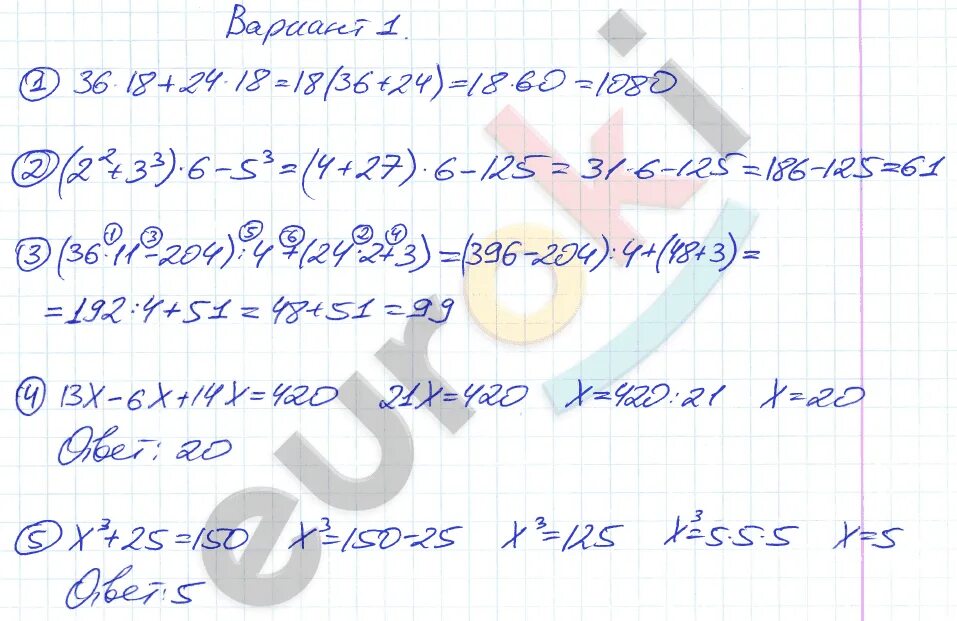 Вариант 1.
① 36·18+24·18=18(36+24)=18·60=1080
② (2²+3³)·6-5³=(4+27)·6-125=31·6-125=186-125=61
① ③ ⑤ ⑥ ② ④
③ (36·11-204):4+(24·2+3)=(396-204):4+(48+3)=
=192:4+51=48+51=99
④ 13x-6x+14x=420 21x=420 x=420:21 x=20
Ответ: 20
⑤ x³+25=150 x³=150-25 x³=125 x³=5·5·5 x=5
Ответ: 5
euroki